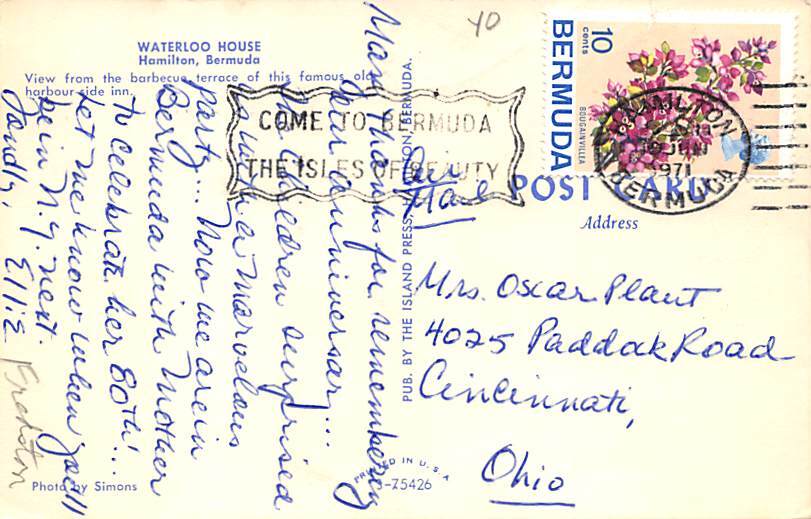 WATERLOO HOUSE
Hamilton, Bermuda
View from the barbecue terrace of this famous old
harbour side inn.
40
10
cents
BERMUDA
BOUGAINVILLEA
COME TO BERMUDA
THE ISLES OF BEAUTY
HAMILTON
1971
BERMUDA
POST CARD
Air
Mail
Address
Many thanks for remembering
our anniversary...
The children surprised
us with a marvelous
party... Now we are in
Bermuda with Mother
to celebrate her 80th!...
Let me know when you'll
be in N.Y. next.
Fondly,
Ellie
Fredston
Mrs. Oscar Plant
4025 Paddak Road
Cincinnati,
Ohio
PUB. BY THE ISLAND PRESS, HAMILTON, BERMUDA.
Photo by Simons
PRINTED IN U.S.A.
-75426